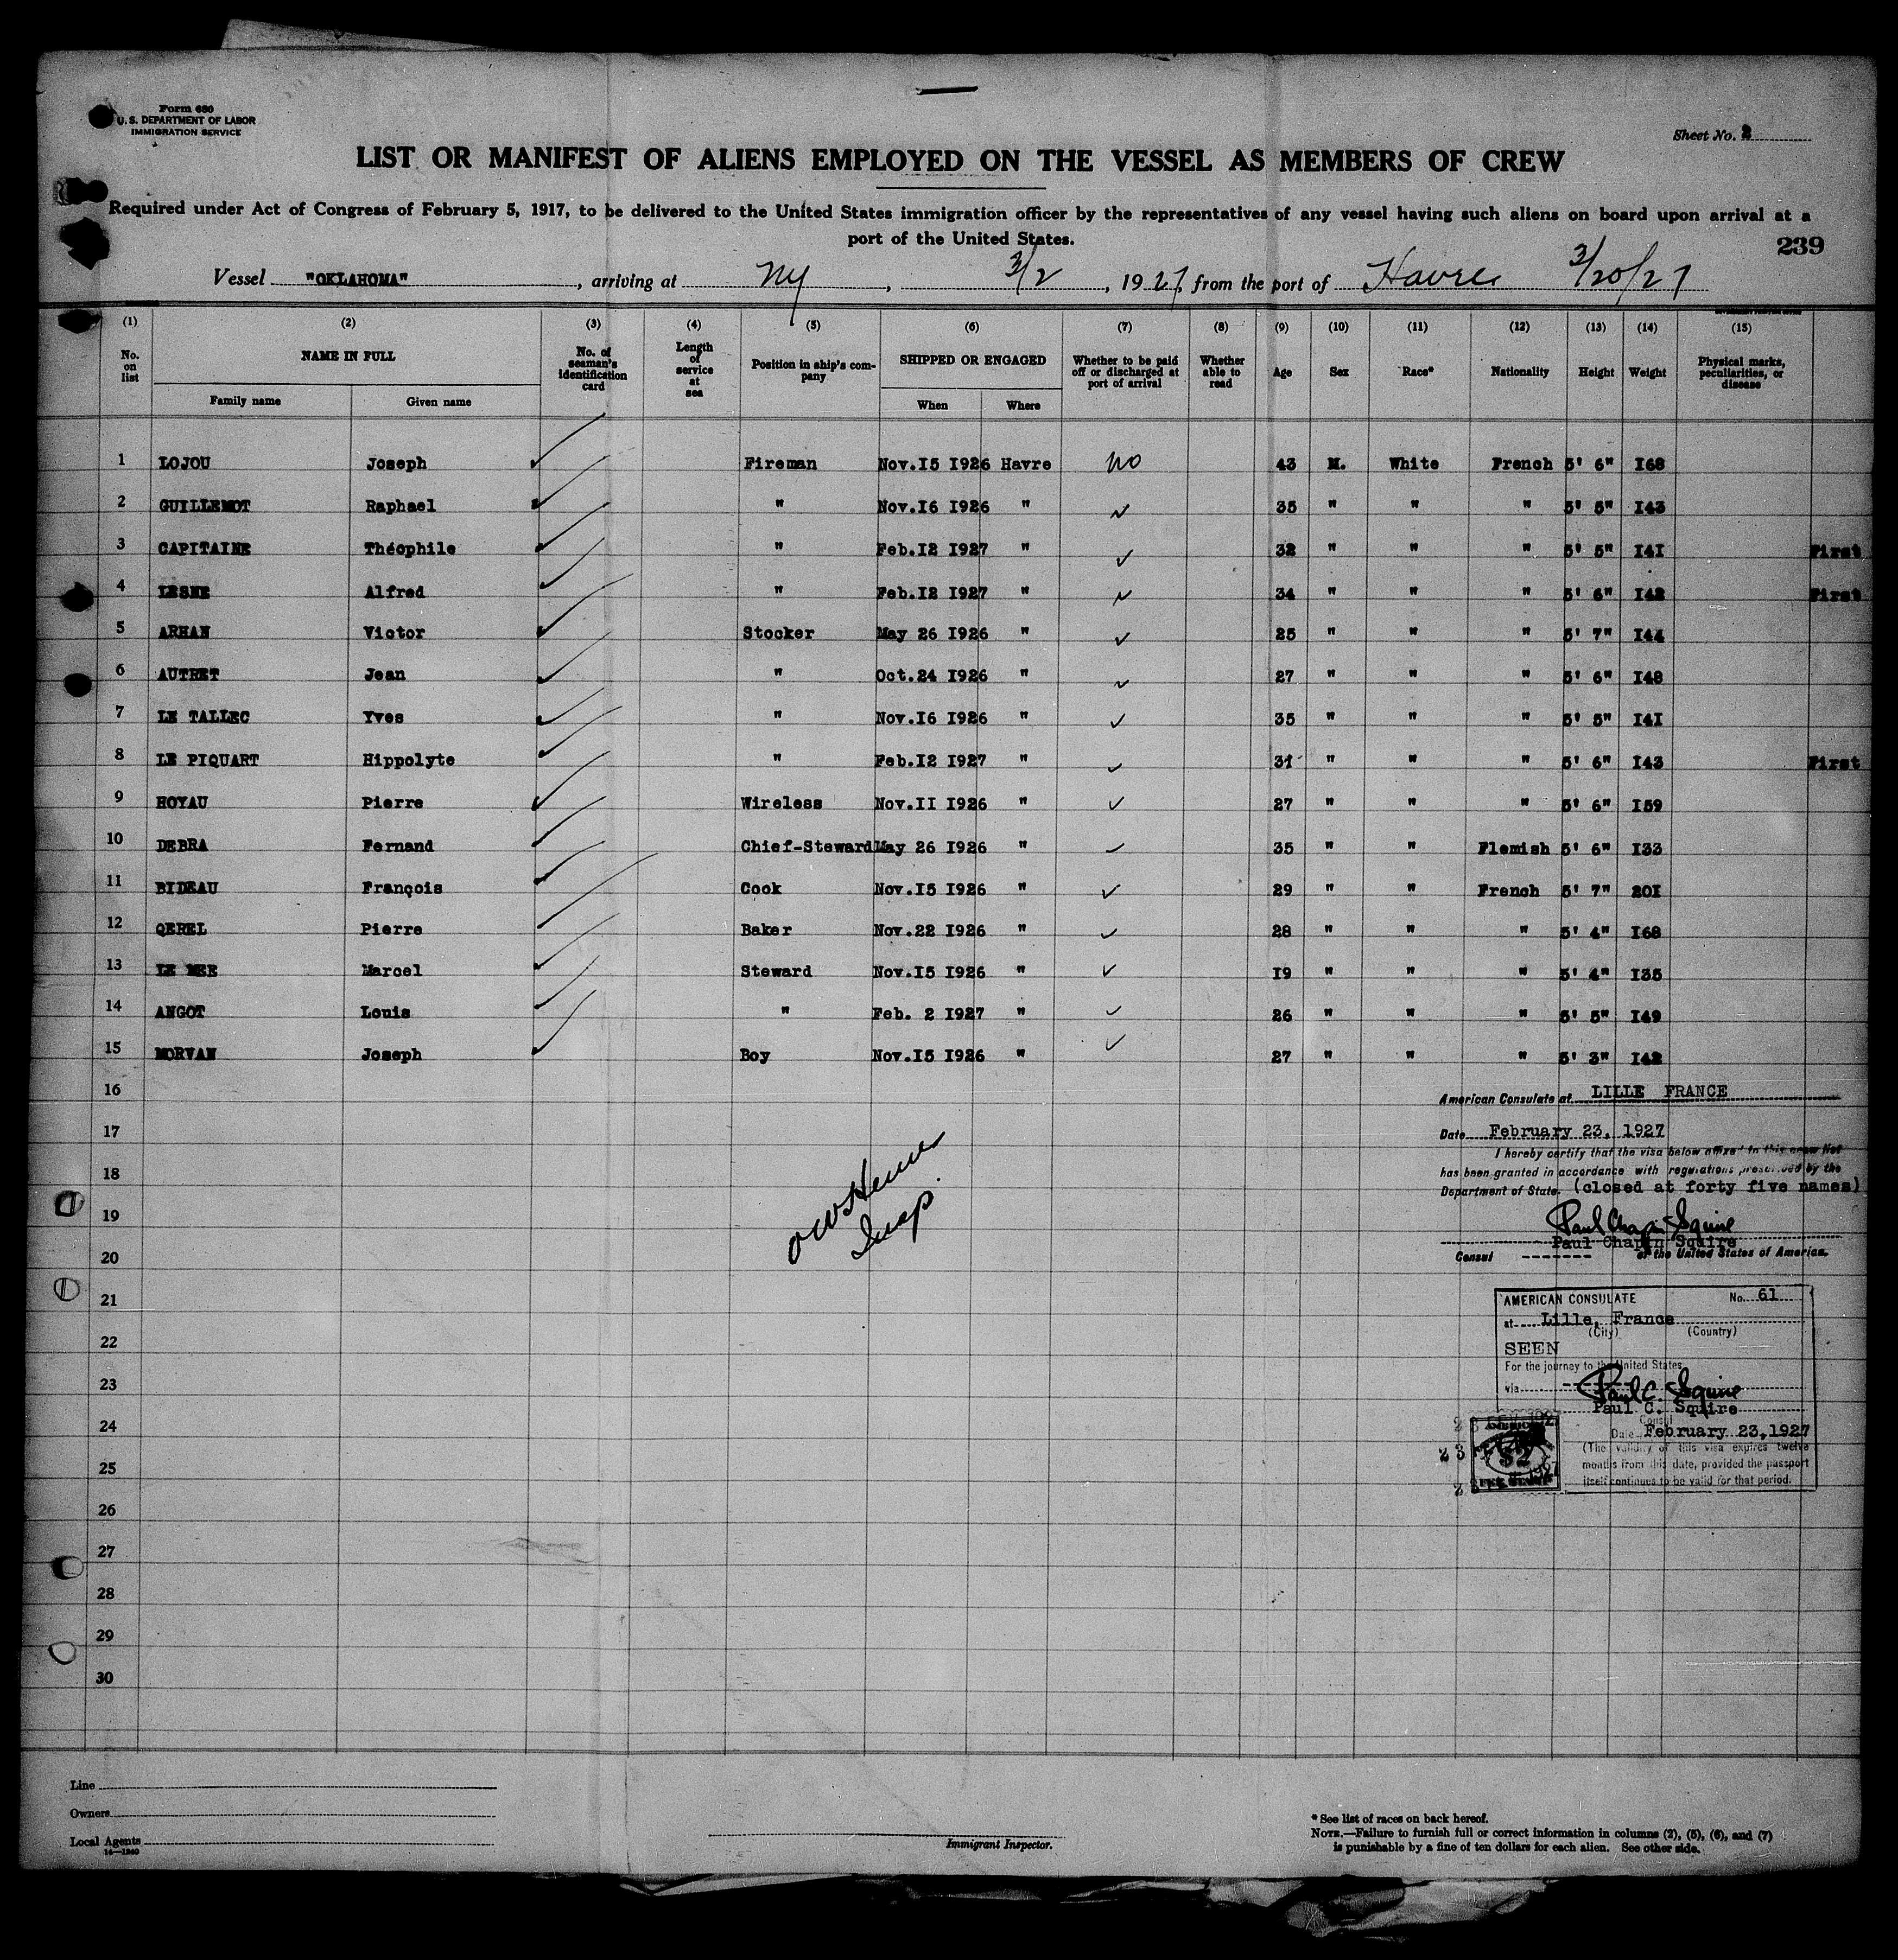 Form 680
U. S. DEPARTMENT OF LABOR
IMMIGRATION SERVICE
Sheet No. 2
LIST OR MANIFEST OF ALIENS EMPLOYED ON THE VESSEL AS MEMBERS OF CREW
Required under Act of Congress of February 5, 1917, to be delivered to the United States immigration officer by the representatives of any vessel having such aliens on board upon arrival at a
port of the United States.
239
Vessel "OKLAHOMA", arriving at NY, 3/2, 1927, from the port of Havre 3/20/27
(1) (2) (3) (4) (5) (6) (7) (8) (9) (10) (11) (12) (13) (14) (15)
No. on list NAME IN FULL No. of seaman's identification card Length of service at sea Position in ship's company SHIPPED OR ENGAGED Whether to be paid off or discharged at port of arrival Whether able to read Age Sex Race* Nationality Height Weight Physical marks, peculiarities, or disease
Family name Given name When Where
1 LOJOU Joseph Fireman Nov.I5 I926 Havre no 43 M. White French 5' 6" I68
2 GUILLEMOT Raphael " Nov.I6 I926 " 35 " " " 5' 5" I43
3 CAPITAINE Théophile " Feb.I2 I927 " 32 " " " 5' 5" I4I First
4 LESNE Alfred " Feb.I2 I927 " 34 " " " 5' 6" I42 First
5 ARHAN Victor Stocker May 26 I926 " 25 " " " 5' 7" I44
6 AUTRET Jean " Oct.24 I926 " 27 " " " 5' 6" I48
7 LE TALLEC Yves " Nov.I6 I926 " 35 " " " 5' 5" I4I
8 LE PIQUART Hippolyte " Feb.I2 I927 " 31 " " " 5' 6" I43 First
9 HOYAU Pierre Wireless Nov.II I926 " 27 " " " 5' 6" I59
10 DEBRA Fernand Chief-Steward May 26 I926 " 35 " " Flemish 5' 6" I33
11 BIDEAU François Cook Nov.I5 I926 " 29 " " French 5' 7" 20I
12 QEREL Pierre Baker Nov.22 I926 " 28 " " " 5' 4" I68
13 LE MEE Marcel Steward Nov.I5 I926 " I9 " " " 5' 4" I35
14 ANGOT Louis " Feb. 2 I927 " 26 " " " 5' 5" I49
15 MORVAN Joseph Boy Nov.I5 I926 " 27 " " " 5' 3" I42
16
17
18
19
20
21
22
23
24
25
26
27
28
29
30
Insp.
American Consulate at LILLE FRANCE
Date February 23, 1927
I hereby certify that the visa below affixed to this crew list
has been granted in accordance with regulations prescribed by the
Department of State. (closed at forty five names)
Paul Chapin Squire
Paul Chapin Squire
Consul ------- of the United States of America.
AMERICAN CONSULATE No. 61
at Lille, France
(City) (Country)
SEEN
For the journey to the United States
via
Paul C. Squire
Paul C. Squire
Consul
Date February 23, 1927
(The validity of this visa expires twelve
months from this date, provided the passport
itself continues to be valid for that period.
$2
FEE STAMP
Line
Owners
Local Agents
14—1240
Immigrant Inspector.
* See list of races on back hereof.
NOTE.—Failure to furnish full or correct information in columns (2), (5), (6), and (7)
is punishable by a fine of ten dollars for each alien. See other side.